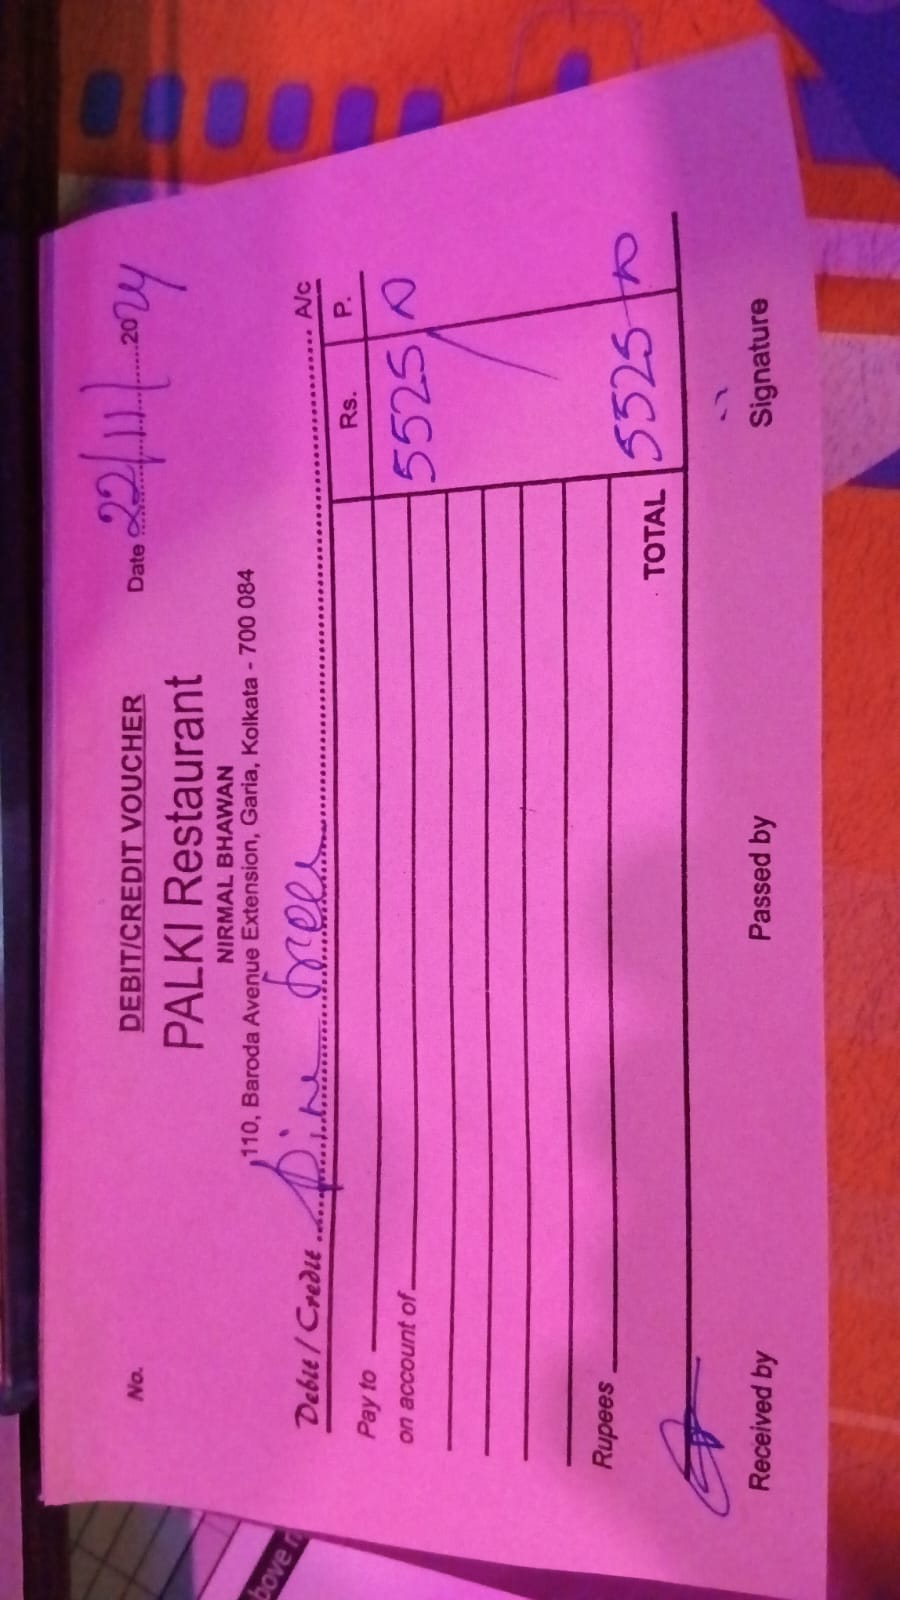 DEBIT/CREDIT VOUCHER
No.
Date 22/11/2024
PALKI Restaurant
NIRMAL BHAWAN
110, Baroda Avenue Extension, Garia, Kolkata - 700 084
Debit / Credit A/c
Rs. P.
Pay to 5525
on account of
Rupees
TOTAL 5525
Received by Passed by Signature
bove